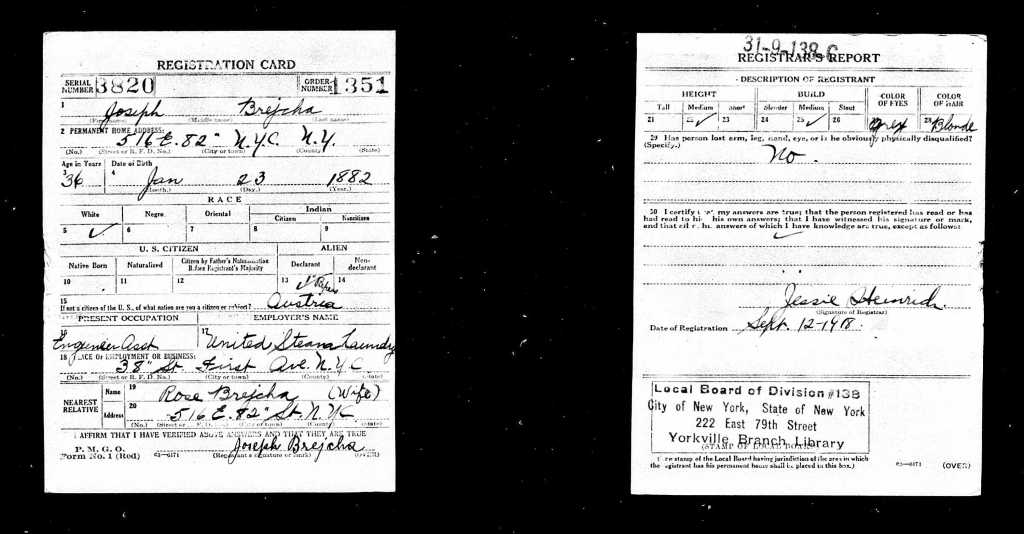 REGISTRATION CARD
SERIAL NUMBER 3820 ORDER NUMBER 1351
1 Joseph Brejcha
(First name) (Middle name) (Last name)
2 PERMANENT HOME ADDRESS:
516 E. 82" N.Y.C. N.Y.
(No.) (Street or R. F. D. No.) (City or town) (County) (State)
Age in Years Date of Birth
3 36 4 Jan 23 1882
(Month.) (Day.) (Year.)
RACE
White Negro Oriental Indian
Citizen Noncitizen
5 ✓ 6 7 8 9
U. S. CITIZEN ALIEN
Native Born Naturalized Citizen by Father's Naturalization Before Registrant's Majority Declarant Non-declarant
10 11 12 13 1st Papers 14
15
If not a citizen of the U. S., of what nation are you a citizen or subject? Austria
PRESENT OCCUPATION EMPLOYER'S NAME
16 Engineer Asst 17 United Steam Laundry
18 PLACE OF EMPLOYMENT OR BUSINESS:
38" St. First Ave. N.Y.C
(No.) (Street or R. F. D. No.) (City or town) (County) (State)
NEAREST RELATIVE
Name 19 Rose Brejcha (Wife)
Address 20 516 E. 82" St. N.Y.C
(No.) (Street or R. F. D. No.) (City or town) (County) (State)
I AFFIRM THAT I HAVE VERIFIED ABOVE ANSWERS AND THAT THEY ARE TRUE
P. M. G. O.
Form No. 1 (Red) 03—6171 Joseph Brejcha
(Registrant's signature or mark) (OVER)
31-9-138 C
REGISTRAR'S REPORT
DESCRIPTION OF REGISTRANT
HEIGHT BUILD COLOR OF EYES COLOR OF HAIR
Tall Medium Short Slender Medium Stout
21 22 ✓ 23 24 25 ✓ 26 27 Grey 28 Blonde
29 Has person lost arm, leg, hand, eye, or is he obviously physically disqualified?
(Specify.)
No.
30 I certify that my answers are true; that the person registered has read or has
had read to him his own answers; that I have witnessed his signature or mark,
and that all of his answers of which I have knowledge are true, except as follows:
✓
Jessie Heinrich
(Signature of Registrar)
Date of Registration Sept. 12-1918.
Local Board of Division #138
City of New York, State of New York
222 East 79th Street
Yorkville Branch Library
(STAMP OF LOCAL BOARD)
(The stamp of the Local Board having jurisdiction of the area in which
the registrant has his permanent home shall be placed in this box.)
03—6171 (OVER)